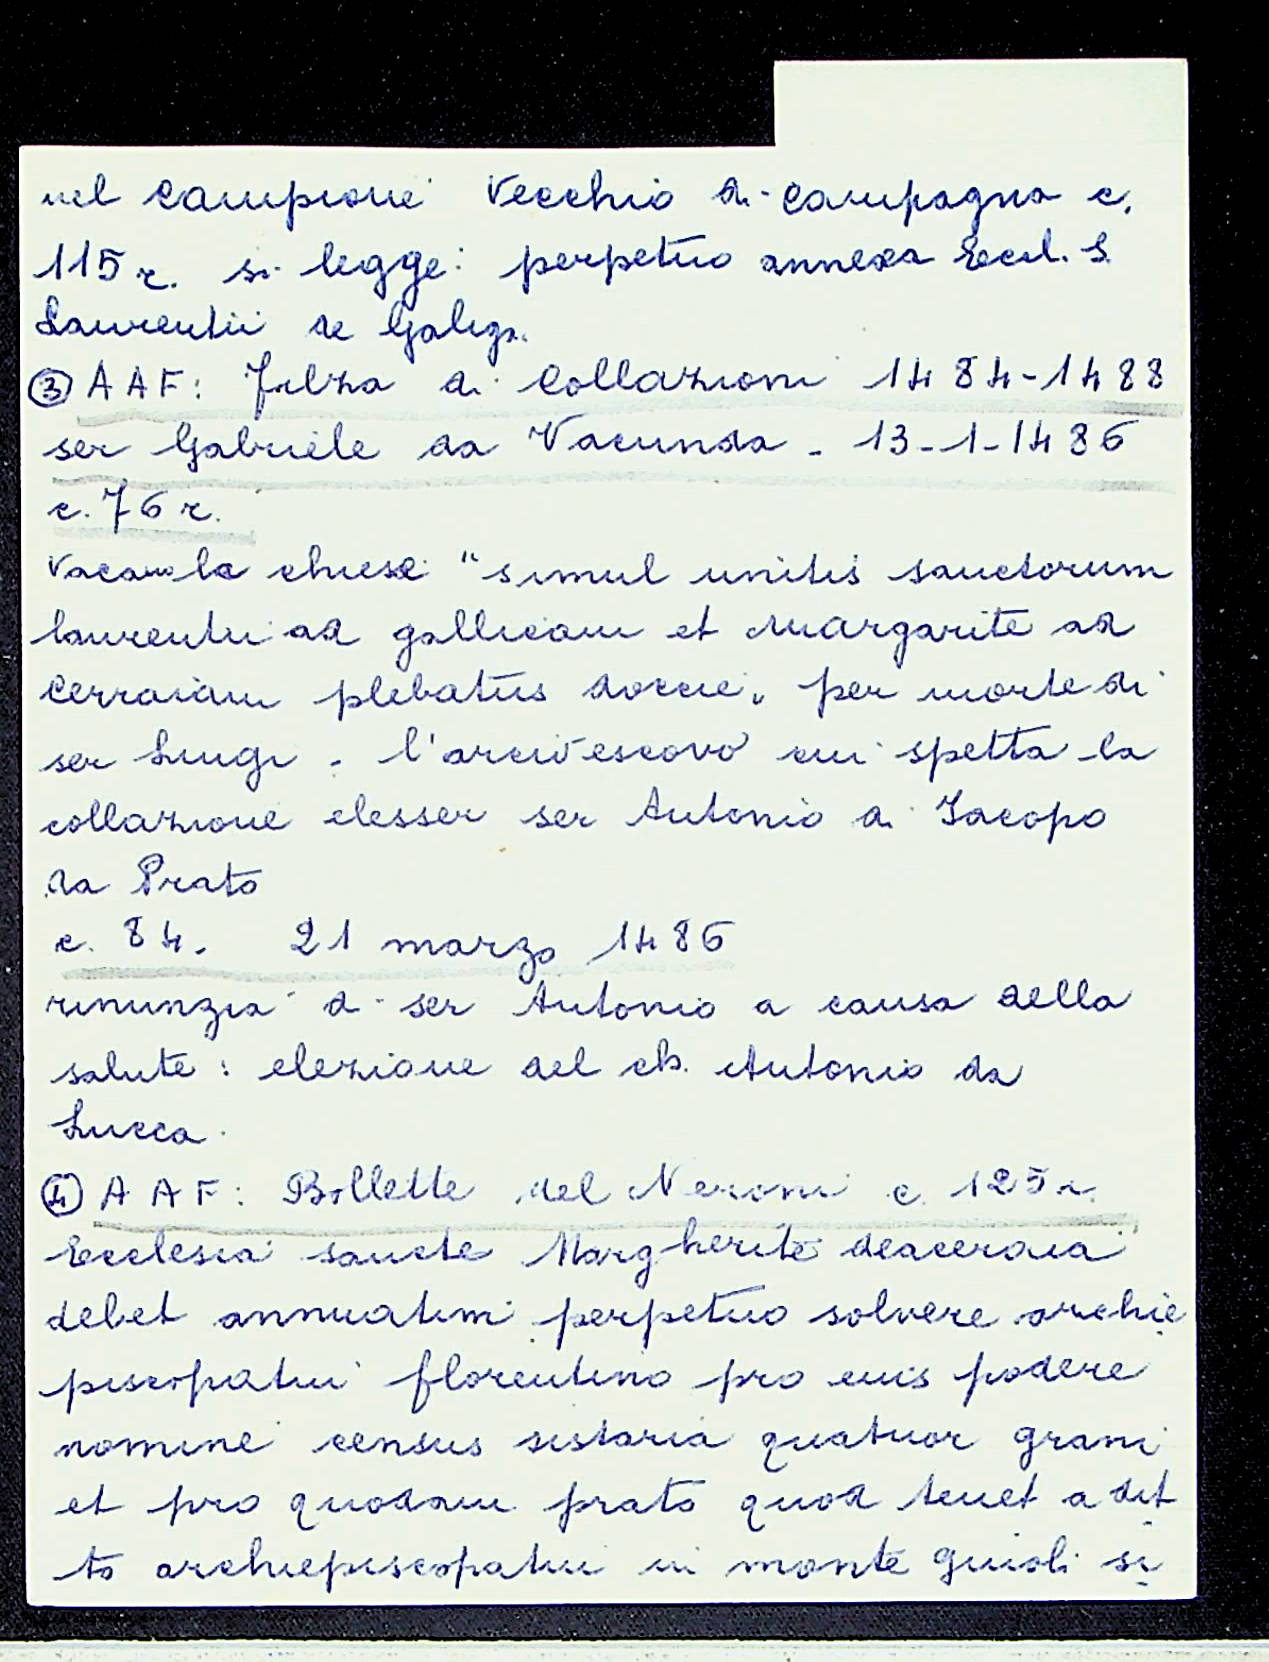 nel Campione Vecchio di Campagna c.
115 r. si legge: perpetuo annexa Eccl. S.
Laurentii de Galiga.
③ AAF: Filza di Collazioni 1484-1488
ser Gabriele da Vacunda - 13-1-1486
c. 76 r.
Vacan la chiese "simul unitis sanctorum
laurentii ad gallicam et Margarite ad
Cerraiam plebatus doccie" per morte di
ser Luigi - l'arcivescovo cui spetta la
collazione elesser ser Antonio di Iacopo
da Prato
c. 84. 21 marzo 1486
rinunzia di ser Antonio a causa della
salute: elezione del ch. Antonio da
Lucca.
④ AAF: Bollette del Neroni c. 125 r.
Ecclesia sancte Margherite deaceraia
debet annuatim perpetuo solvere archie
piscopatui florentino pro euis podere
nomine census sistaria quatuor grani
et pro quodam prato quod tenet a dit
to archiepiscopatui in monte guioli si